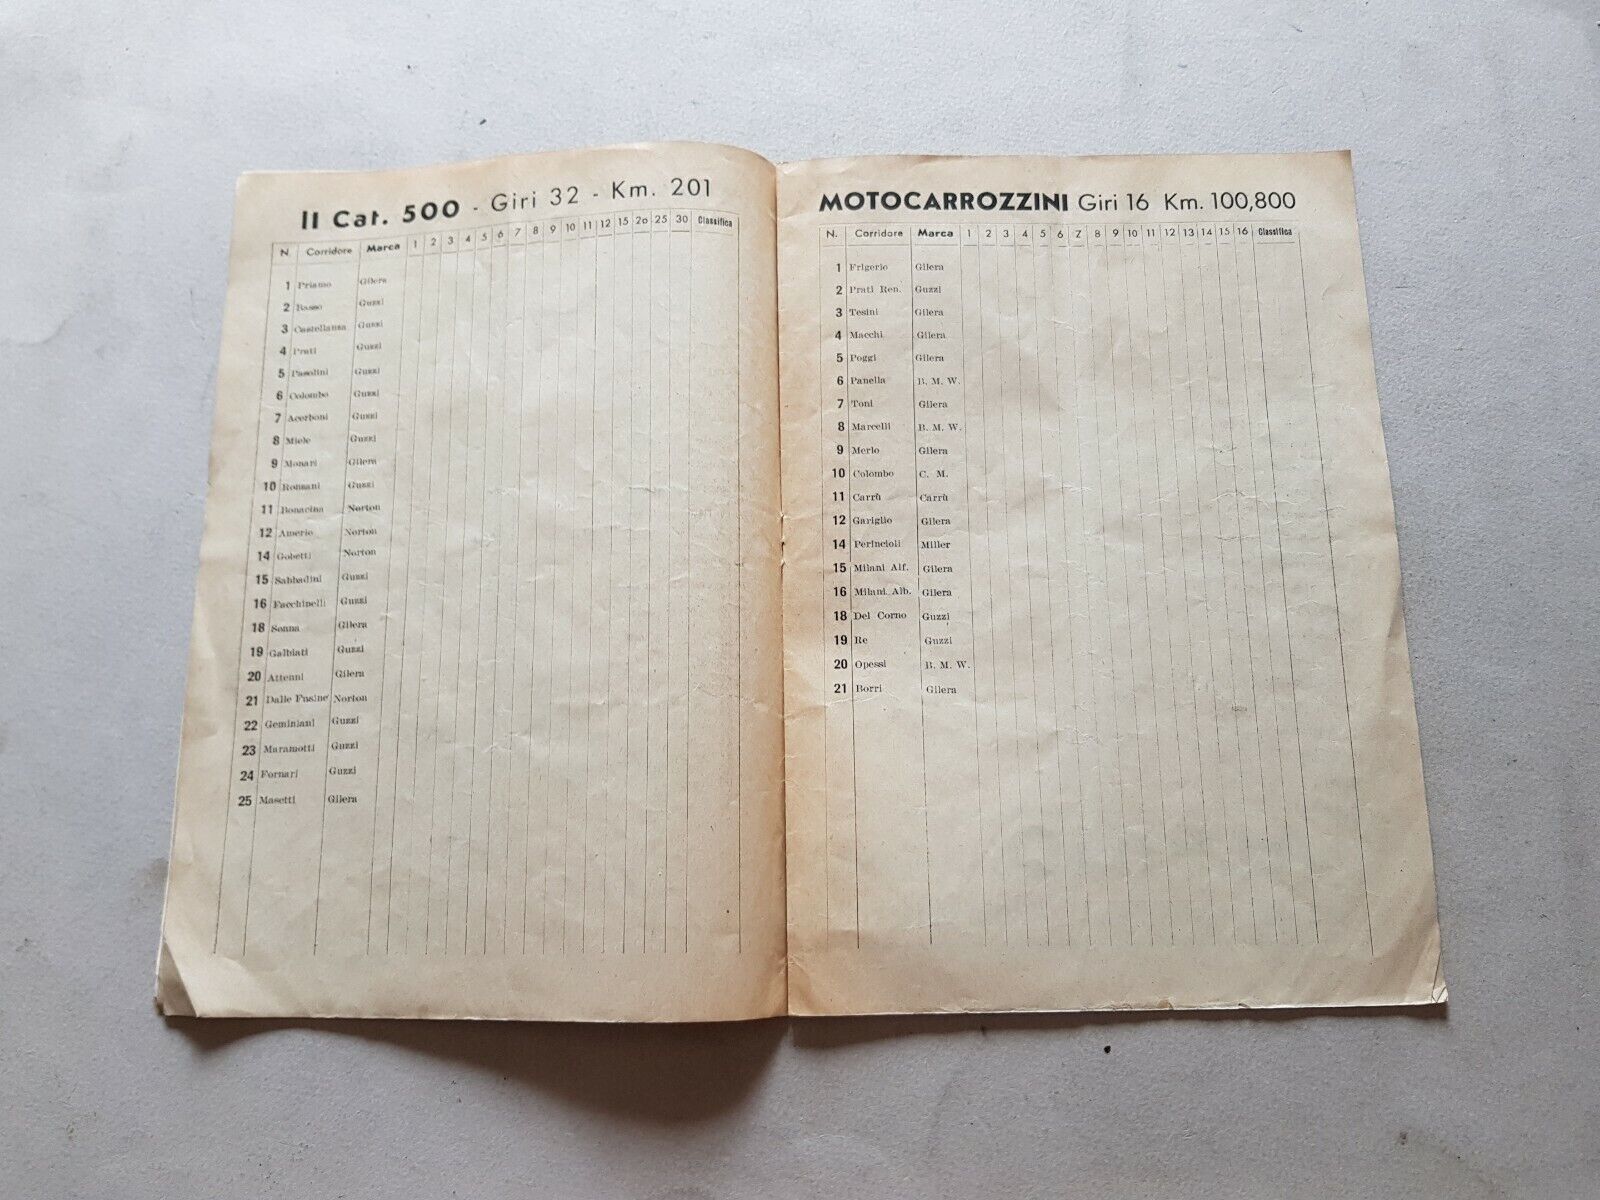 II Cat. 500 - Giri 32 - Km. 201
N. Corridore Marca 1 2 3 4 5 6 7 8 9 10 11 12 15 20 25 30 Classifica
1 Priamo Gilera
2 Basso Guzzi
3 Castellansa Guzzi
4 Prati Guzzi
5 Pasolini Guzzi
6 Colombo Guzzi
7 Acerboni Guzzi
8 Miele Guzzi
9 Monari Gilera
10 Romani Guzzi
11 Bonacina Norton
12 Amerio Norton
14 Gobetti Norton
15 Sabbadini Guzzi
16 Facchinelli Guzzi
18 Sonna Gilera
19 Galbiati Guzzi
20 Attenni Gilera
21 Dalle Fusine Norton
22 Geminiani Guzzi
23 Maramotti Guzzi
24 Fornari Guzzi
25 Masetti Gilera
MOTOCARROZZINI Giri 16 Km. 100,800
N. Corridore Marca 1 2 3 4 5 6 7 8 9 10 11 12 13 14 15 16 Classifica
1 Frigerio Gilera
2 Prati Ren. Guzzi
3 Tesini Gilera
4 Macchi Gilera
5 Poggi Gilera
6 Panella B. M. W.
7 Toni Gilera
8 Marcelli B. M. W.
9 Merlo Gilera
10 Colombo C. M.
11 Carrù Carrù
12 Gariglio Gilera
14 Perincioli Miller
15 Milani Alf. Gilera
16 Milani Alb. Gilera
18 Del Corno Guzzi
19 Re Guzzi
20 Opessi B. M. W.
21 Borri Gilera